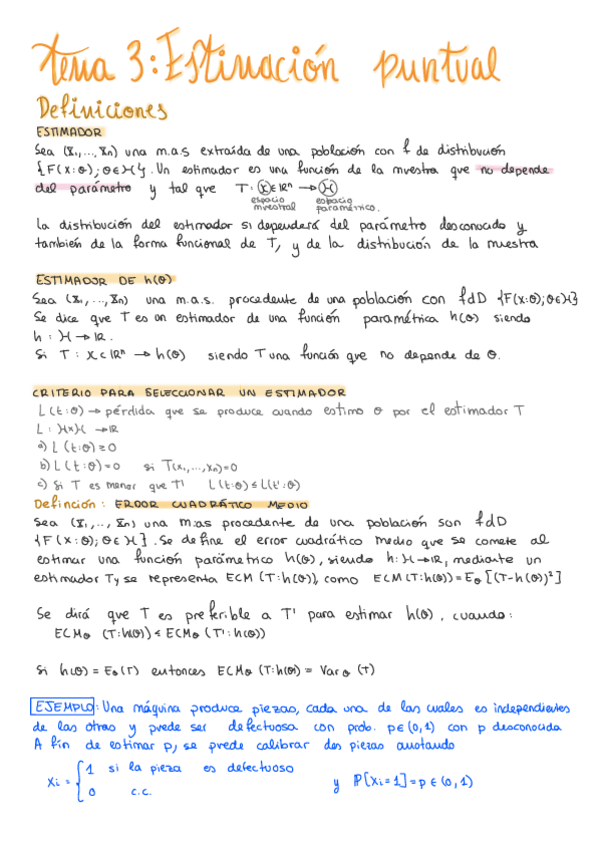 tema 3: Estimación puntual
Definiciones
ESTIMADOR
Sea (X₁,...,Xn) una m.a.s extraída de una población con f de distribución
{F(x:θ); θ∈Θ}. Un estimador es una función de la muestra que no depende
del parámetro y tal que T: χ∈ℝⁿ → Θ
espacio muestral espacio paramétrico.
La distribución del estimador si dependerá del parámetro desconocido y
también de la forma funcional de T, y de la distribución de la muestra
ESTIMADOR DE h(θ)
Sea (X₁,..,Xn) una m.a.s. procedente de una población con fdD {F(x:θ); θ∈Θ}
Se dice que T es un estimador de una función paramétrica h(θ) siendo
h: Θ → ℝ.
Si T: χ⊂ℝⁿ → h(θ) siendo T una función que no depende de θ.
CRITERIO PARA SELECCIONAR UN ESTIMADOR
L(t:θ) → pérdida que se produce cuando estimo θ por el estimador T
L: Θ×Θ → ℝ
a) L(t:θ) ≥ 0
b) L(t:θ) = 0 si T(x₁,...,xn)=θ
c) Si T es menor que T' L(t:θ) ≤ L(t':θ)
Definción: ERROR CUADRÁTICO MEDIO
Sea (X₁,.., Xn) una m.as procedente de una población son fdD
{F(x:θ); θ∈Θ}. Se define el error cuadrático medio que se comete al
estimar una función parámetrico h(θ), siendo h: Θ→ℝ, mediante un
estimador T y se representa ECM (T:h(θ)), como ECM(T:h(θ)) = Eθ [(T-h(θ))²]
Se dirá que T es preferible a T' para estimar h(θ), cuando:
ECMθ (T:h(θ)) ≤ ECMθ (T':h(θ))
Si h(θ) = Eθ(T) entonces ECMθ (T:h(θ)) = Varθ (T)
EJEMPLO: Una máquina produce piezas, cada una de las cuales es independientes
de las otras y puede ser defectuosa con prob. p∈(0,1) con p desconocida
A fin de estimar p, se puede calibrar dos piezas anotando
Xi = { 1 si la pieza es defectuoso
0 c.c. y P[Xi=1]=p∈(0,1)